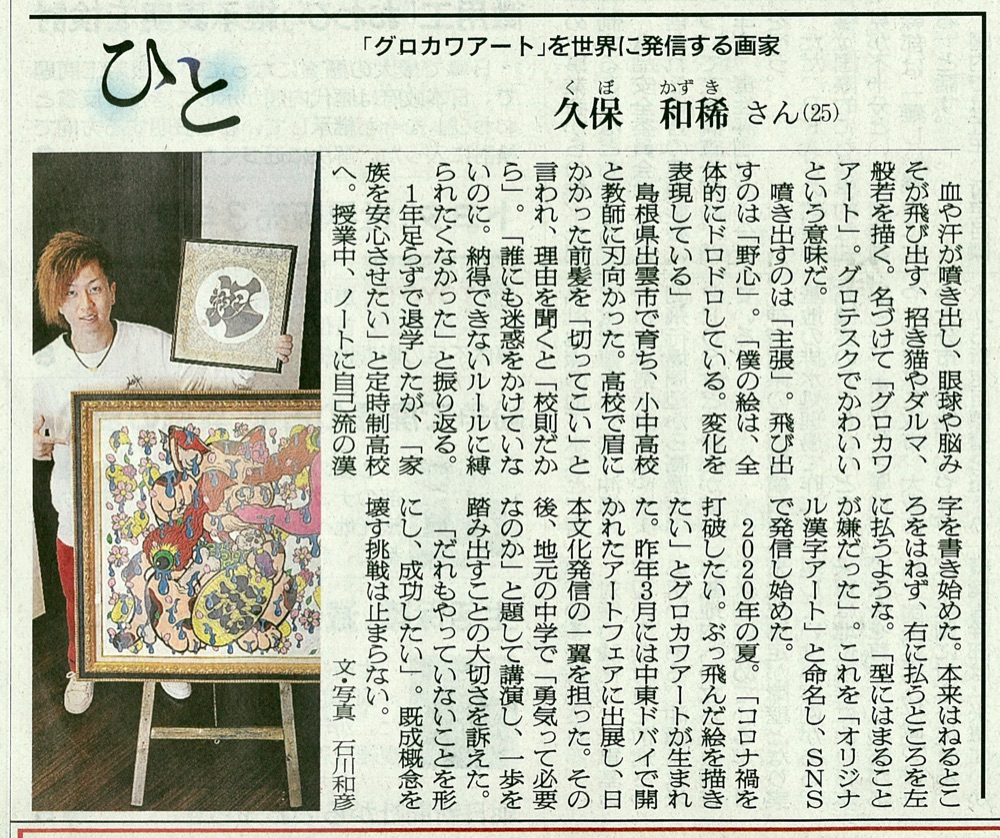 ひと
「グロカワアート」を世界に発信する画家
くぼ かずき
久保 和稀 さん(25)
血や汗が噴き出し、眼球や脳み
そが飛び出す、招き猫やダルマ、
般若を描く。名づけて「グロカワ
アート」。グロテスクでかわいい
という意味だ。
噴き出すのは「主張」。飛び出
すのは「野心」。「僕の絵は、全
体的にドロドロしている。変化を
表現している」
島根県出雲市で育ち、小中高校
と教師に刃向かった。高校で眉に
かかった前髪を「切ってこい」と
言われ、理由を聞くと「校則だか
ら」。「誰にも迷惑をかけていな
いのに。納得できないルールに縛
られたくなかった」と振り返る。
1年足らずで退学したが、「家
族を安心させたい」と定時制高校
へ。授業中、ノートに自己流の漢
字を書き始めた。本来はねるとこ
ろをはねず、右に払うところを左
に払うような。「型にはまること
が嫌だった」。これを「オリジナ
ル漢字アート」と命名し、SNS
で発信し始めた。
2020年の夏。「コロナ禍を
打破したい。ぶっ飛んだ絵を描き
たい」とグロカワアートが生まれ
た。昨年3月には中東ドバイで開
かれたアートフェアに出展し、日
本文化発信の一翼を担った。その
後、地元の中学で「勇気って必要
なのか」と題して講演し、一歩を
踏み出すことの大切さを訴えた。
「だれもやっていないことを形
にし、成功したい」。既成概念を
壊す挑戦は止まらない。
文・写真 石川和彦